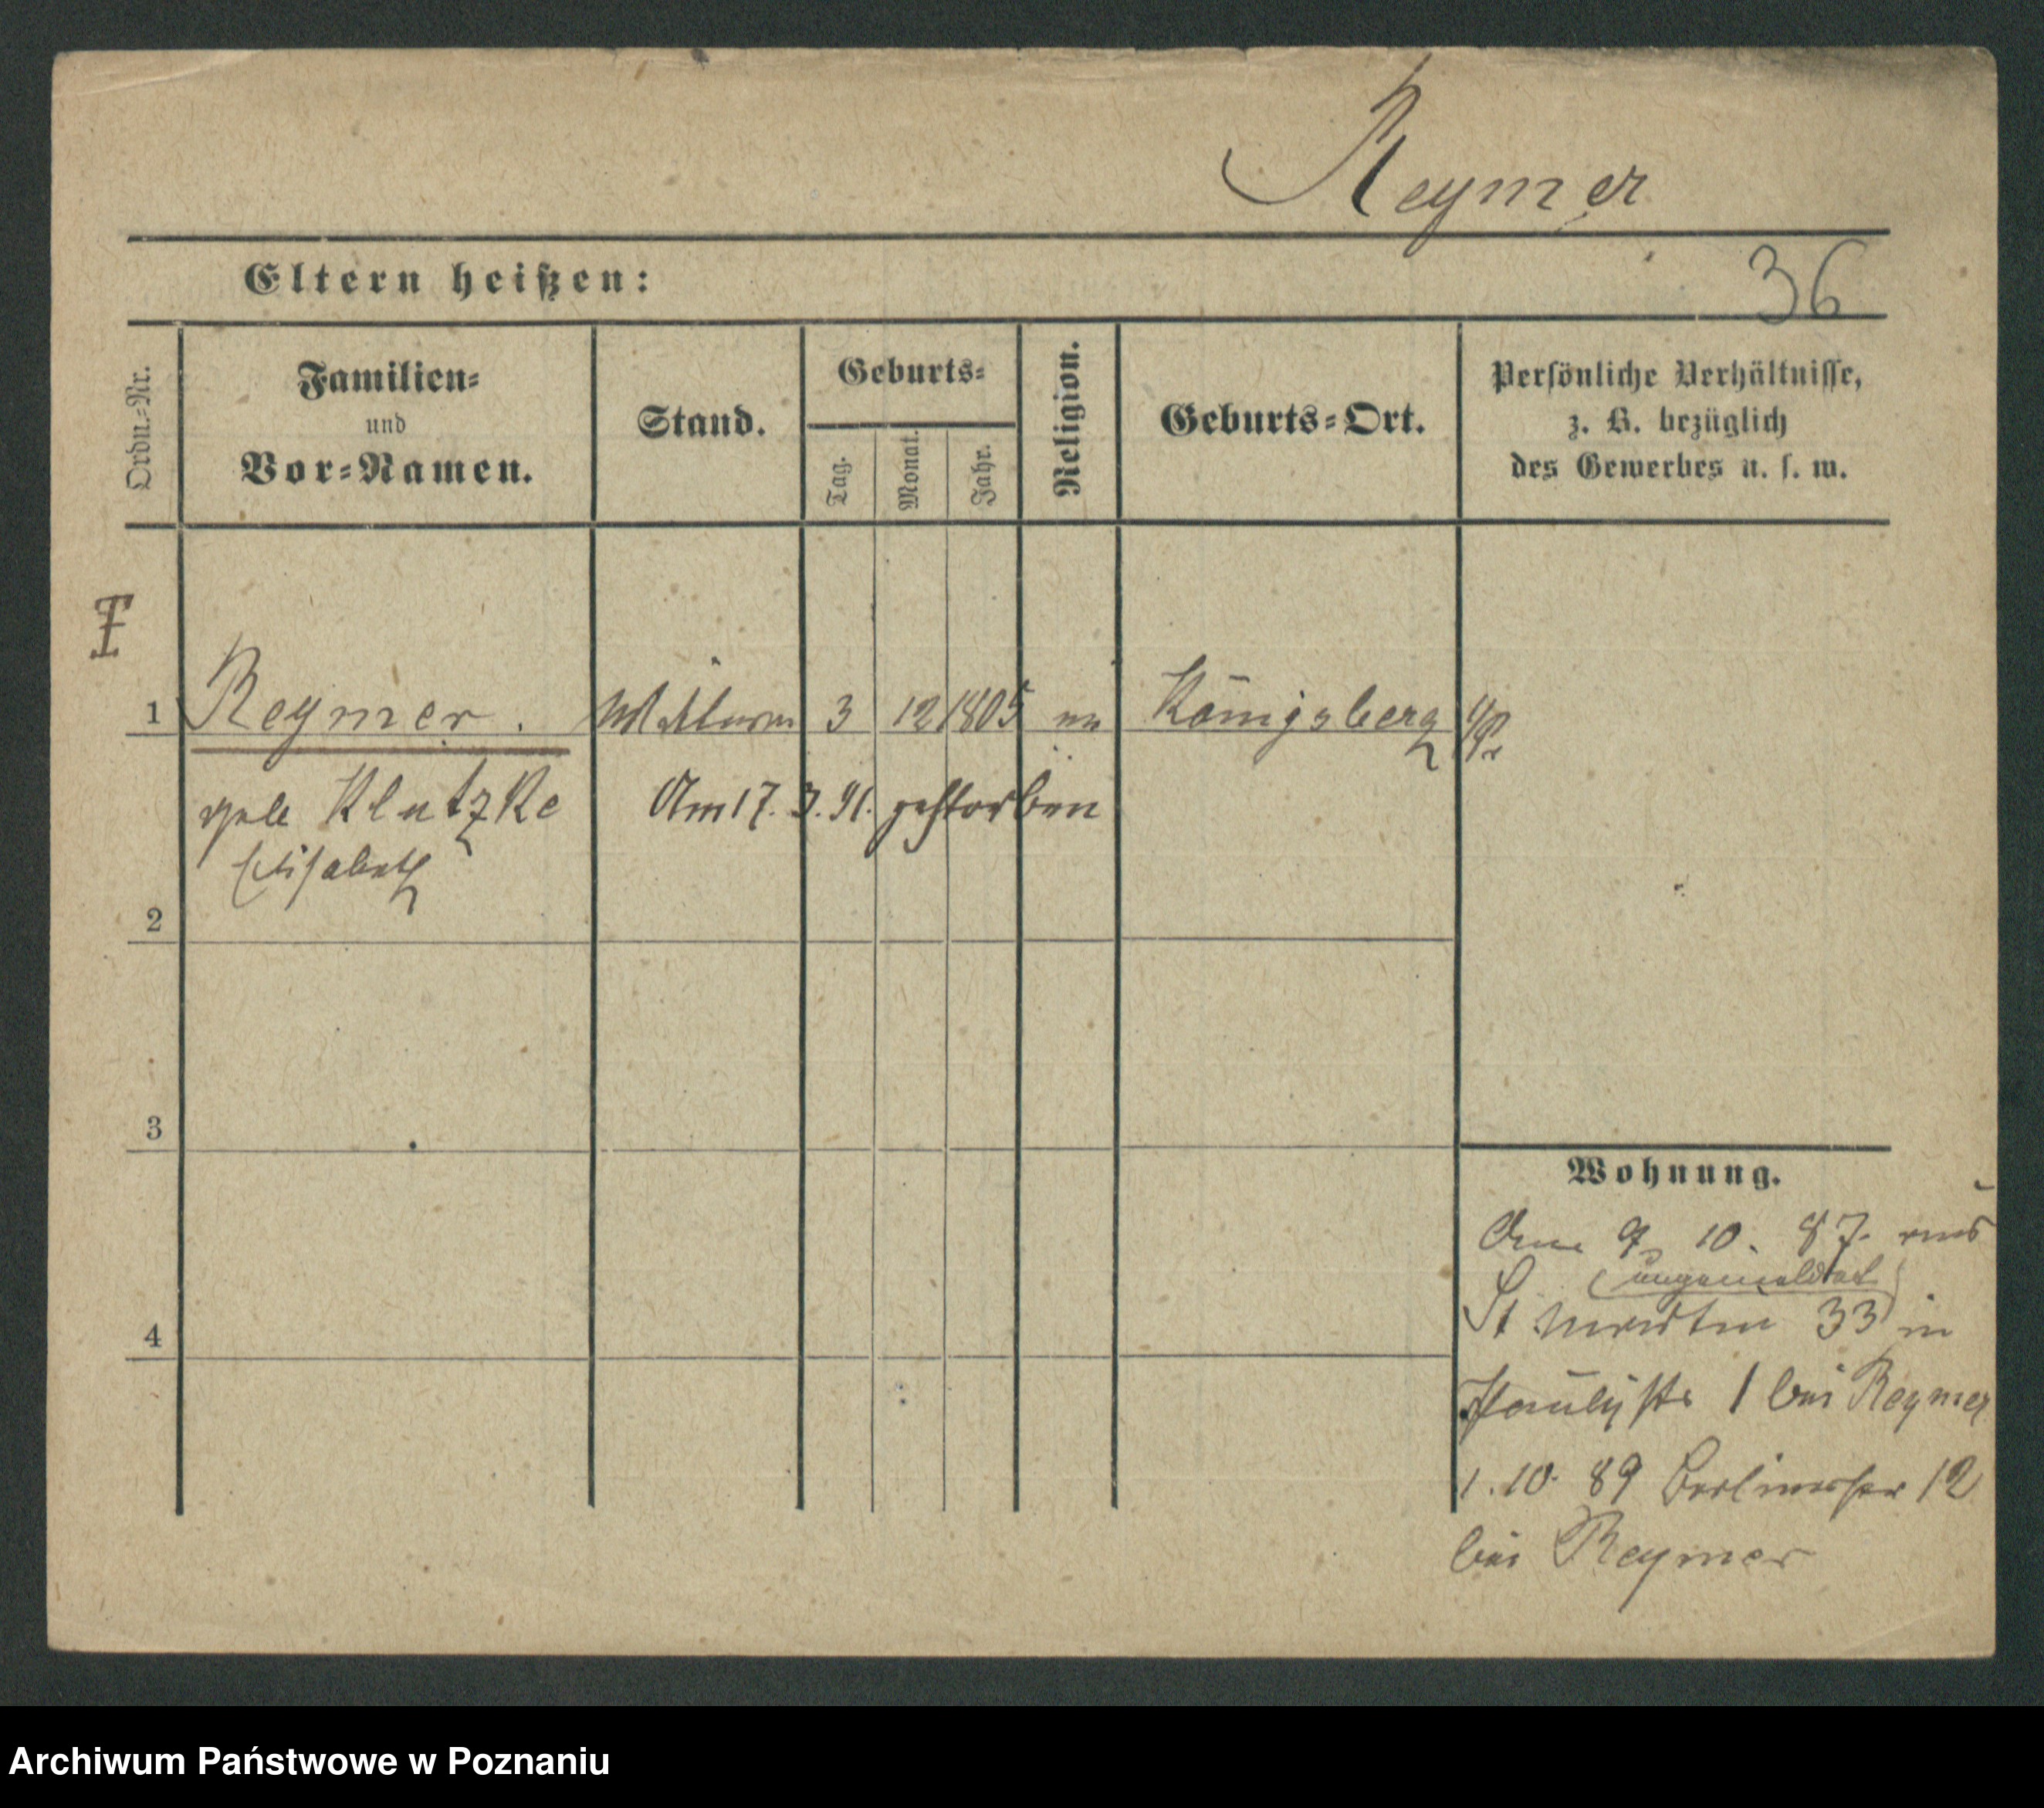 Reymer
Eltern heißen:
36
Ordn.-Nr.
Familien-
und
Vor-Namen.
Stand.
Geburts-
Tag.
Monat.
Jahr.
Religion.
Geburts-Ort.
Persönliche Verhältnisse,
z. B. bezüglich
des Gewerbes u. s. w.
1 Reymer. 3 12 1805 Königsberg i/Pr
geb Klutzke Am 17. 3. 91. gestorben
Elisabeth
2
3
4
Wohnung.
9 10. 87. aus
(angemeldet)
St Martin 33 in
1 bei Reymer
1. 10. 89 Berlinerstr 12
bei Reymer
Archiwum Państwowe w Poznaniu